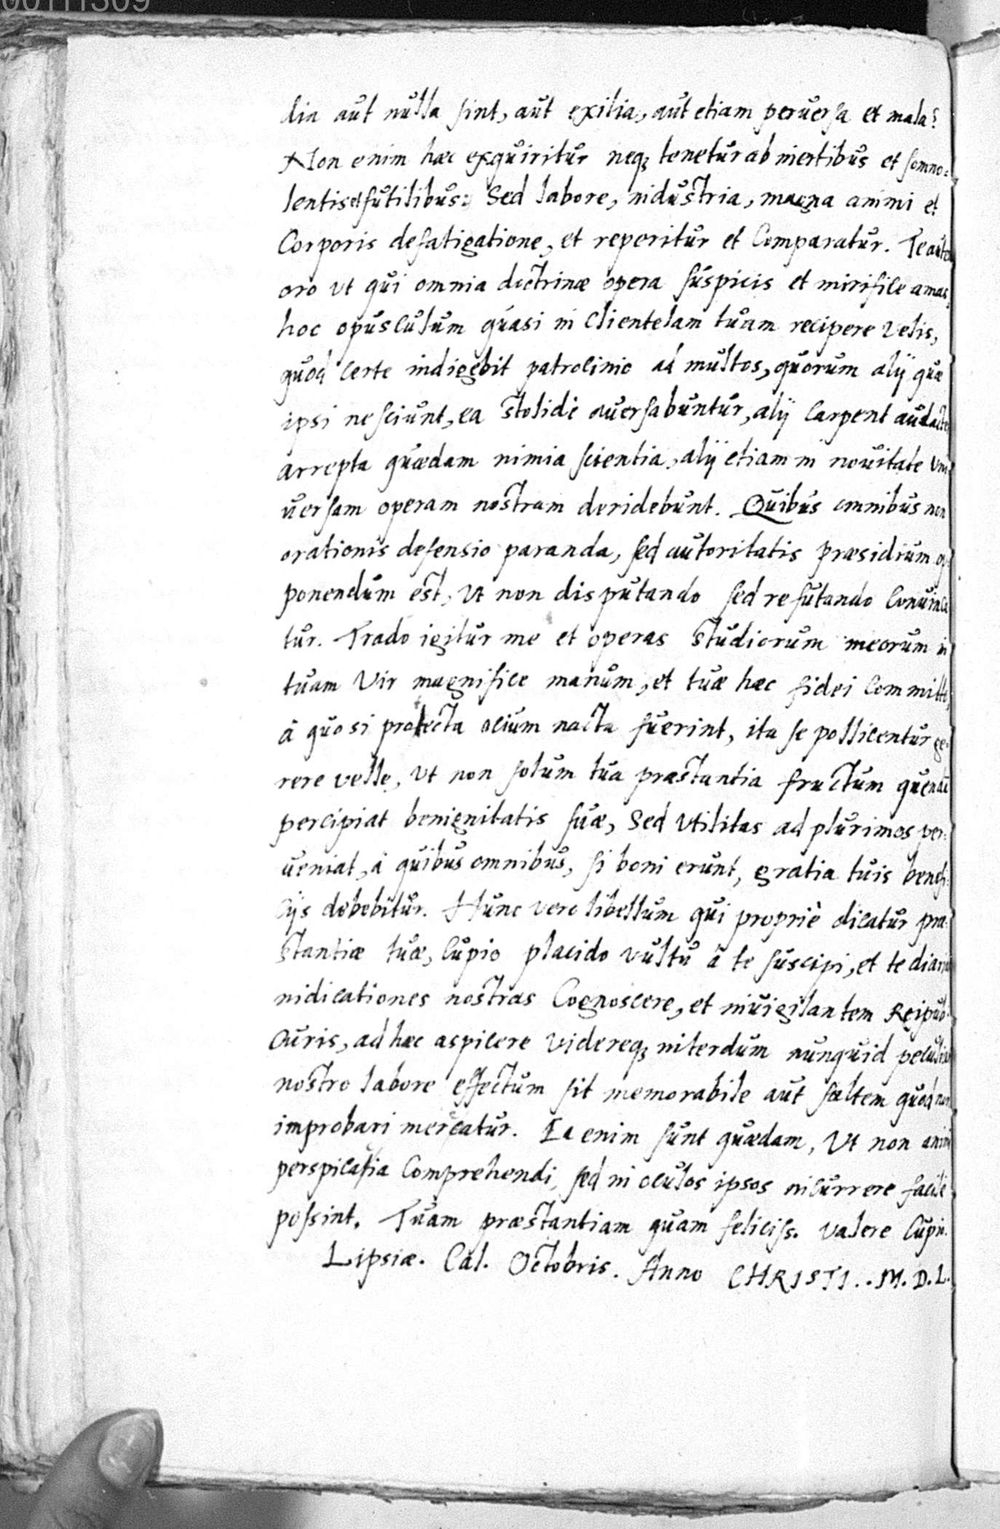 00111309
dia aut nulla sint, aut exilia, aut etiam peruersa et mala?
Non enim hæc exquiritur neq; tenetur ab inertibus et somno=
lentis et futilibus: Sed labore, industria, magna animi et
Corporis defatigatione, et reperitur et Comparatur. Te aute
oro vt qui omnia doctrinæ opera suspicis et mirifice amas,
hoc opusculum quasi in Clientelam tuam recipere velis,
quod certe indigebit patrocinio ad multos, quorum alij quæ
ipsi nesciunt, ea stolidè auersabuntur, alij carpent audacte
arrepta quædam nimia scientia, alij etiam in nouitate vni
uersam operam nostram deridebunt. Quibus omnibus non
orationis defensio paranda, sed autoritatis præsidium op
ponendum est, vt non disputando sed refutando Conuinca
tur. Trado igitur me et operas studiorum meorum in
tuam Vir magnifice manum, et tuæ hæc fidei Committo
à quo si protecta ocium nacta fuerint, ita se pollicentur ge=
rere velle, vt non solum tua præstantia fructum quendā
percipiat benignitatis suæ, Sed vtilitas ad plurimos per=
ueniat, à quibus omnibus, si boni erunt, gratia tuis benefi=
cijs debebitur. Hunc vero libellum qui propriè dicatur præ=
stantiæ tuæ, Cupio placido vultu à te suscipi, et te
indicationes nostras Cognoscere, et inuigilantem Reipub
Curis, ad hæc aspicere videreq; interdum nunquid peculia
nostro labore effectum sit memorabile aut saltem quod non
improbari mereatur. Ea enim sunt quædam, Vt non animi
perspicatia Comprehendi, sed in oculos ipsos incurrere facile
possint. Tuam præstantiam quam feliciss. valere Cupio.
Lipsiæ. Cal. Octobris. Anno CHRISTI. . M. D. L.